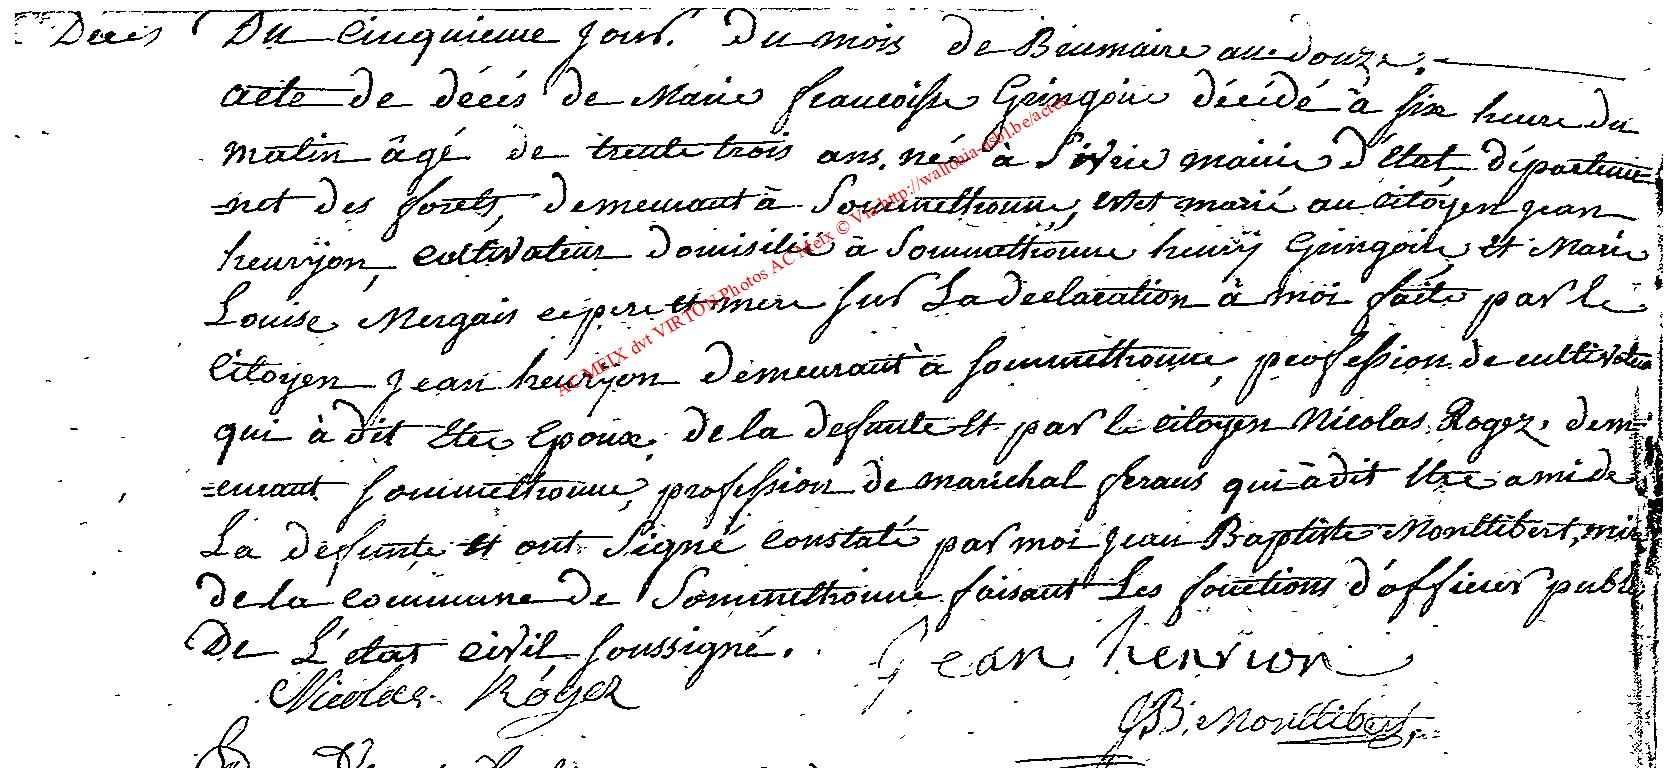 Decès Du Cinquieme Jour. Du mois de Brumaire an douze.
acte de décés de Marie francoisse Gringoire décédé à six heure du
matin âgé de trente trois ans, né à Sivrie mairie d'Etat départeme
=net des forêts, demeurant à Sommethonne, et marié au Citoyen jean
henrÿon, Cultivateur domisilié à Sommethonne henrÿ Gringoire et Marie
Louise Mergais ce pere et mere sur La declaration à moi faite par le
Citoyen Jean henrÿon demeurant à Sommethonne, profession de cultivateur
qui à dit Etre Epoux de la defunte et par le citoyen Nicolas Rogez, dem
=eurant Sommethonne, profession de marichal ferans qui à dit Etre ami de
La defunte et ont Signé Constaté par moi Jean Baptiste Monttibert, mair
de la commune de Sommethonne faisant Les fonctions d'officier public
De L'état civil soussigné.
Jean henrion
Nicolas Rogez
JB. Monttibert,
AC MEIX dvt VIRTON Photos AC Meix © Via http://wallonia-asbl.be/actes